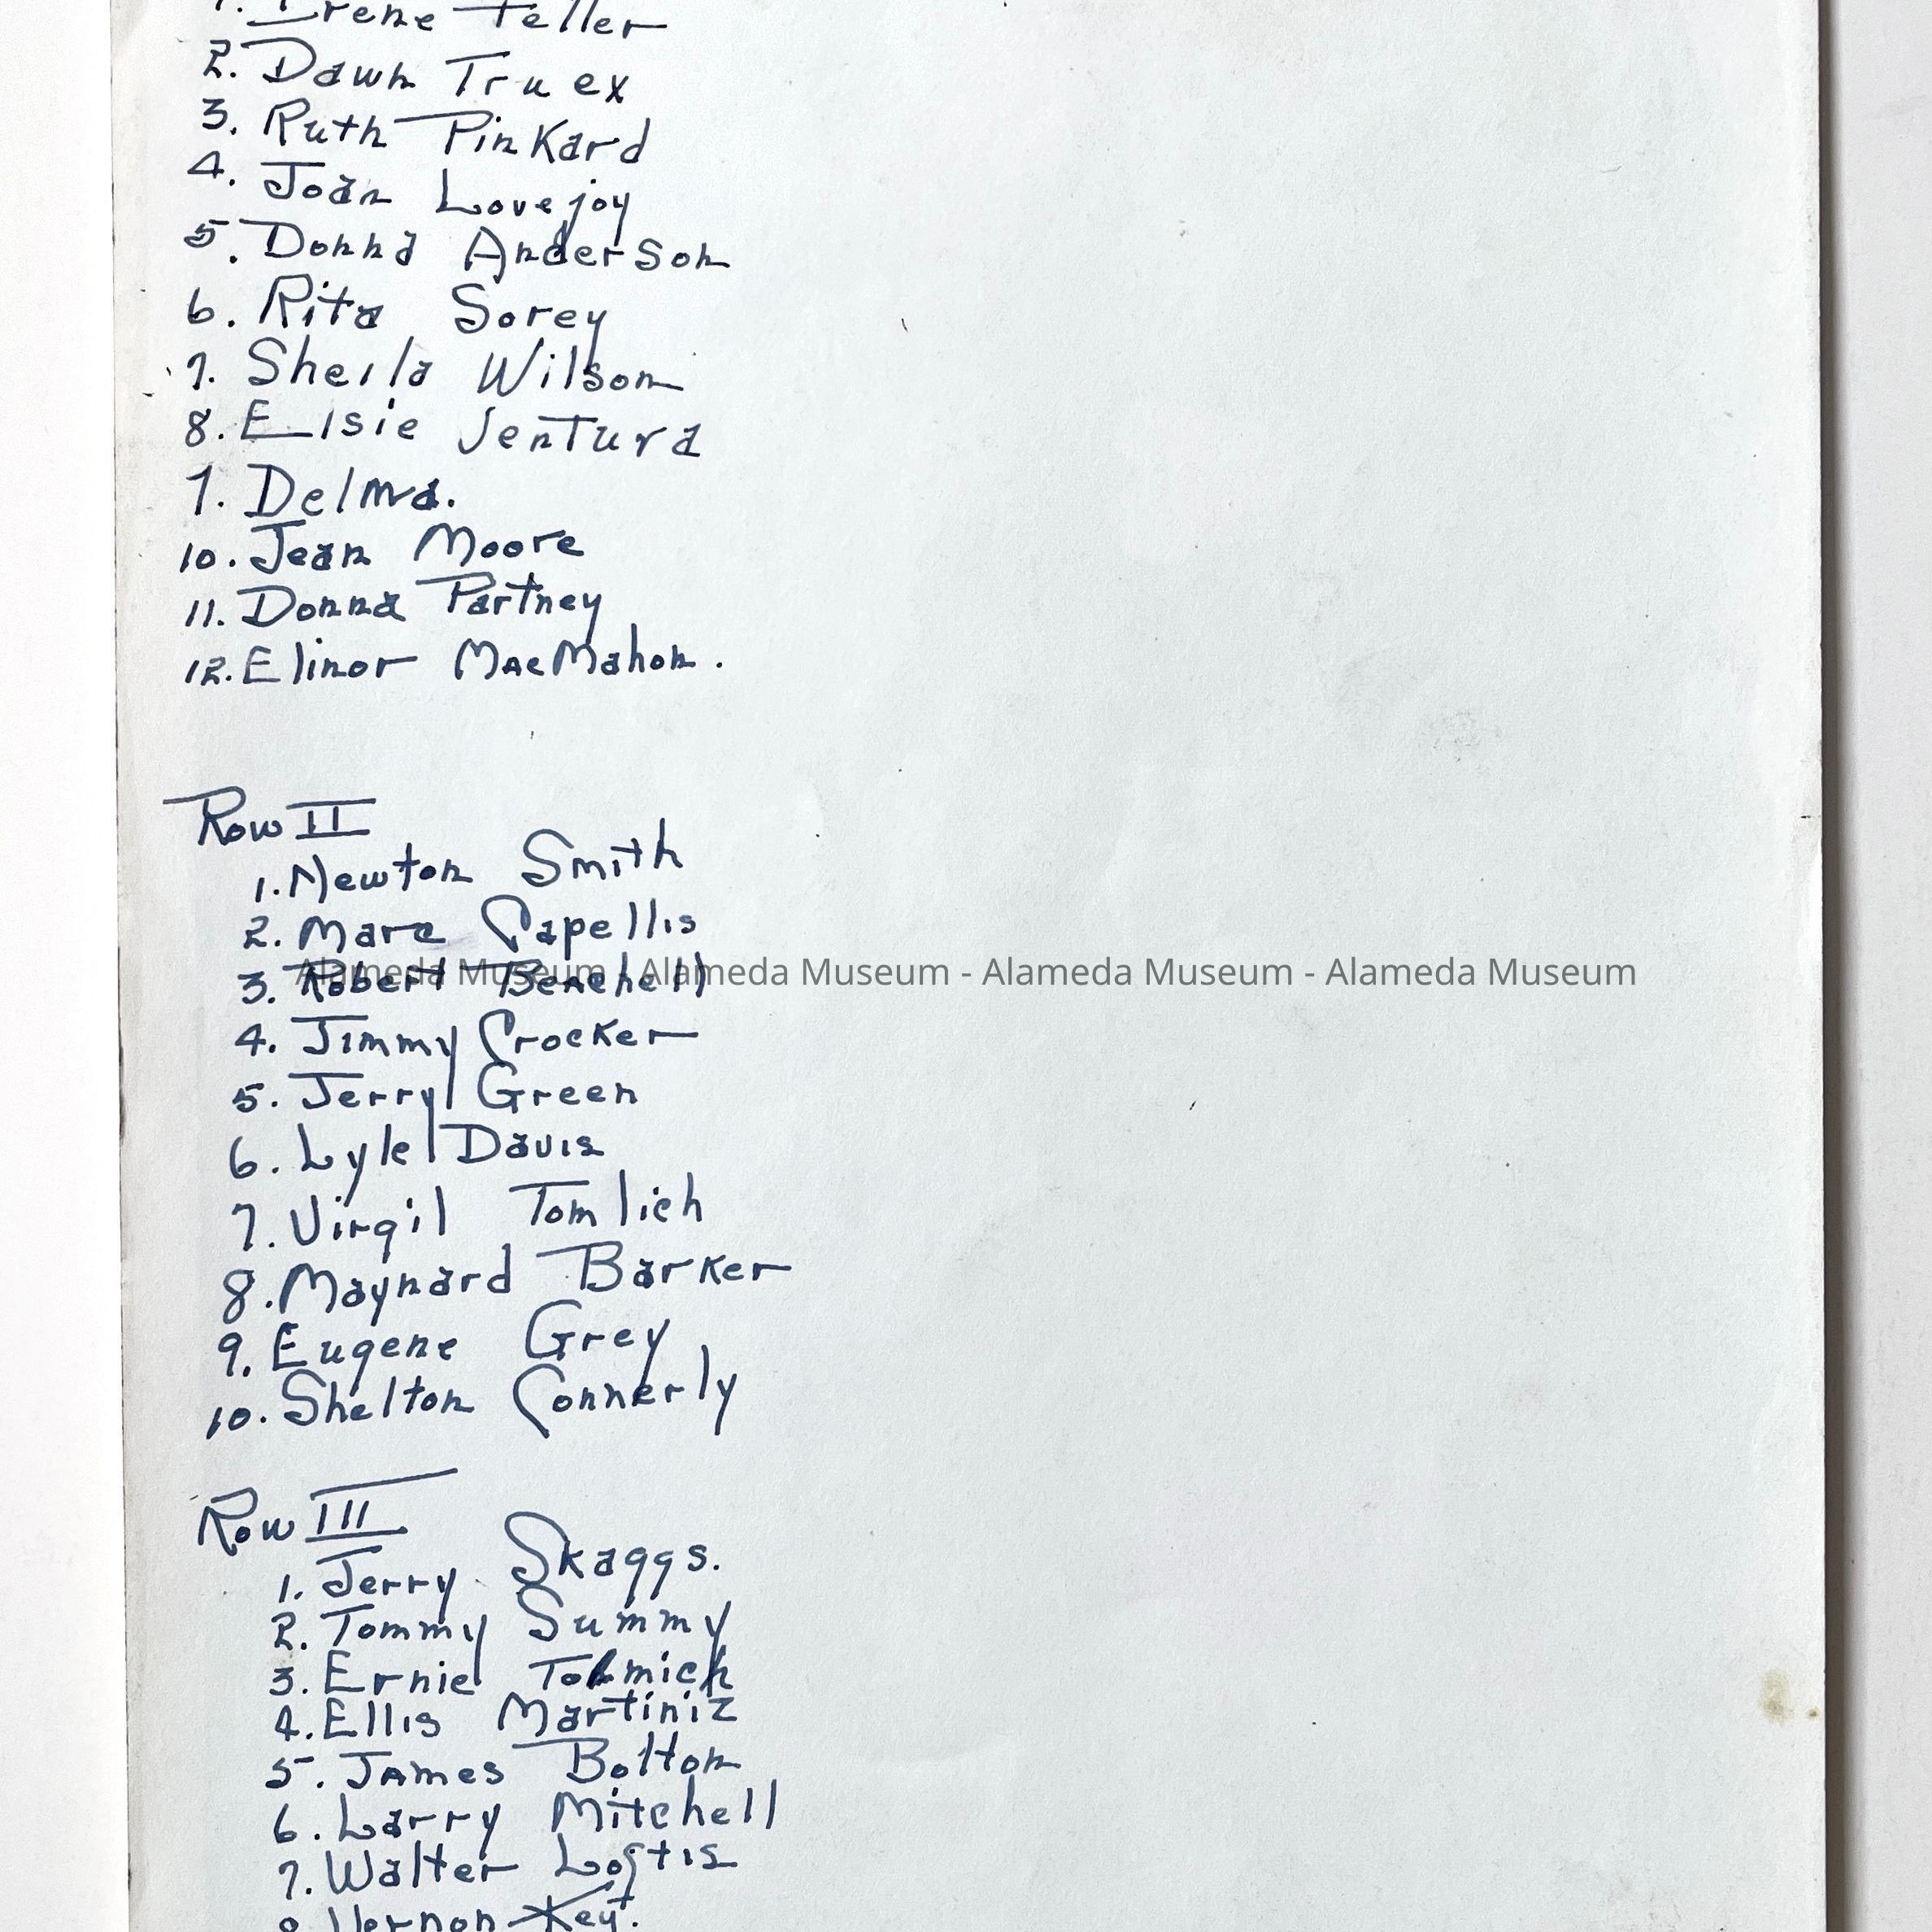 1. Irene Feller
2. Dawn Truex
3. Ruth Pinkard
4. Joan Lovejoy
5. Donna Anderson
6. Rita Sorey
7. Sheila Wilson
8. Elsie Ventura
9. Delma.
10. Jean Moore
11. Donna Partney
12. Elinor MacMahon.
Row II
1. Newton Smith
2. Marc Capellis
3. Robert Benchell
Alameda Museum - Alameda Museum - Alameda Museum - Alameda Museum
4. Jimmy Crocker
5. Jerry Green
6. Lyle Davis
7. Virgil Tomlich
8. Maynard Barker
9. Eugene Grey
10. Shelton Connerly
Row III
1. Jerry Skaggs.
2. Tommy Summy
3. Ernie
4. Ellis Martiniz
5. James Bolton
6. Larry Mitchell
7. Walter Loftis
8. Vernon Key.